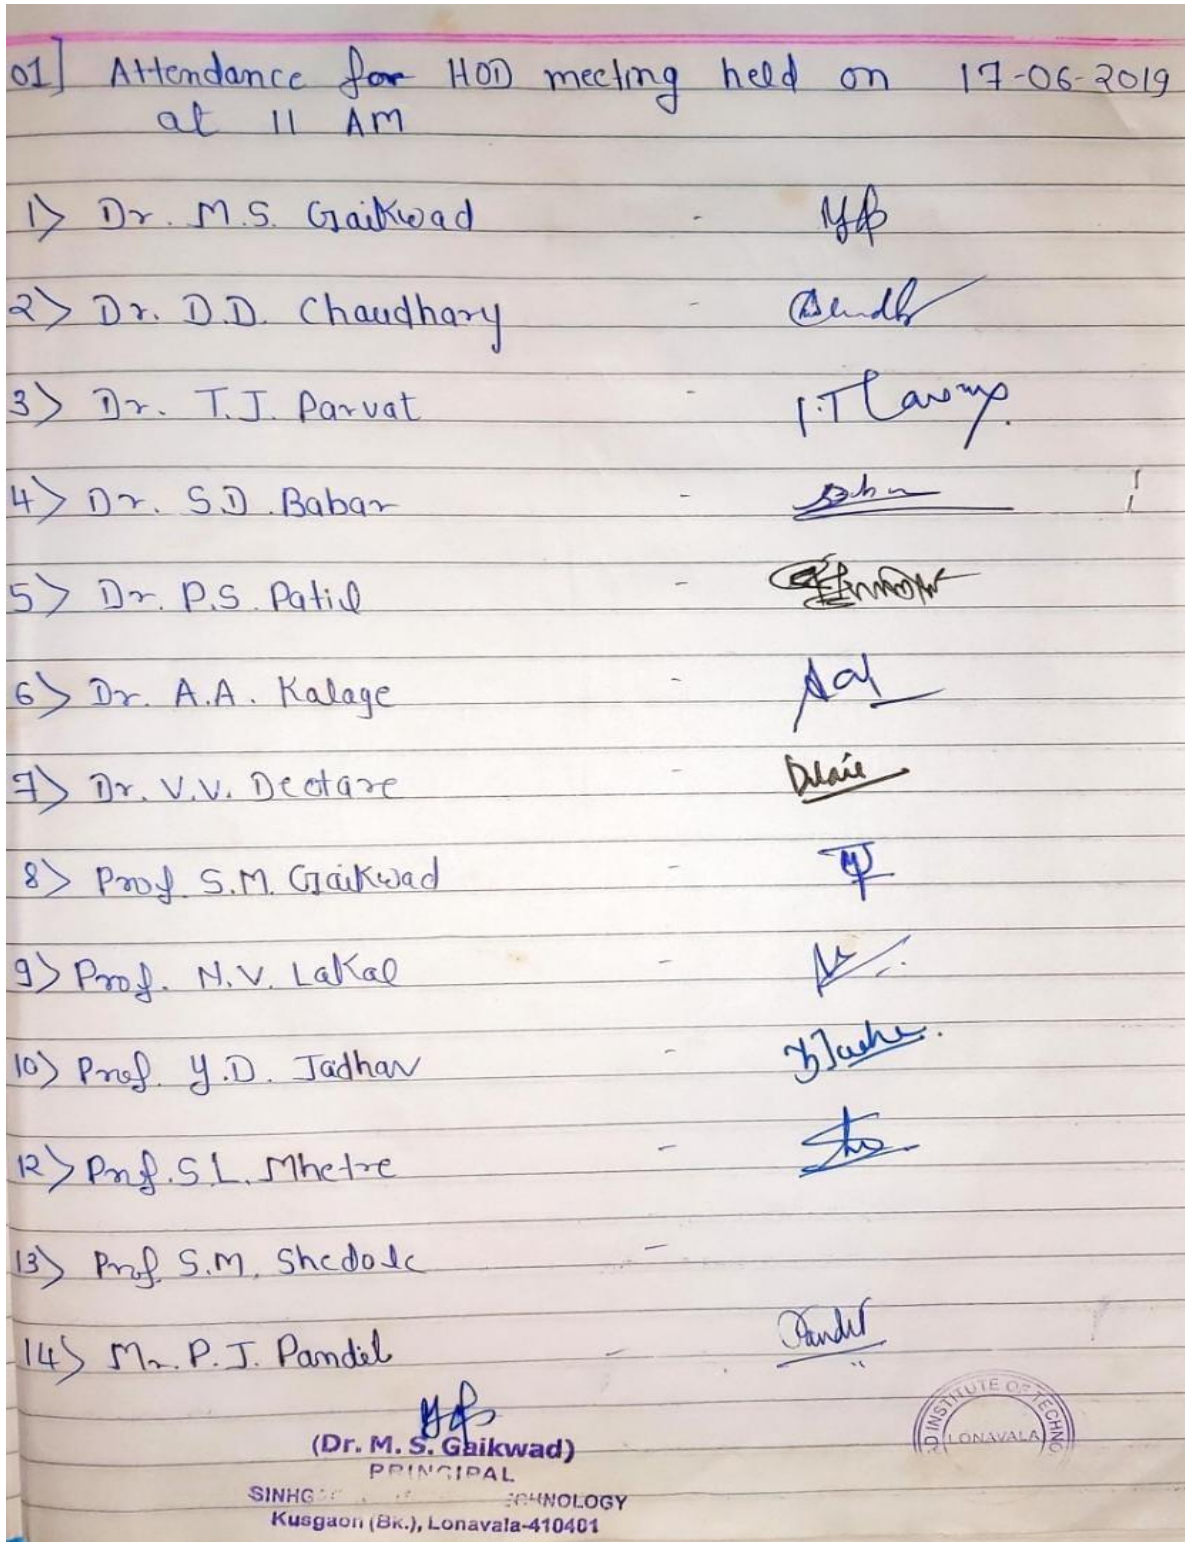 01] Attendance for HOD meeting held on 17-06-2019
at 11 AM
1> Dr. M.S. Gaikwad -
2> Dr. D.D. Chaudhary -
3> Dr. T.J. Parvat -
4> Dr. S.D. Babar -
5> Dr. P.S. Patil -
6> Dr. A.A. Kalage -
7> Dr. V.V. Deotare -
8> Prof. S.M. Gaikwad -
9> Prof. N.V. Lakal -
10> Prof. Y.D. Jadhav -
12> Prof. S.L. Mhetre -
13> Prof. S.M. Shedole -
14> Mr. P.J. Pandit -
(Dr. M. S. Gaikwad)
PRINCIPAL
SINHG ECHNOLOGY
Kusgaon (Bk.), Lonavala-410401
AD INSTITUTE OF TECHNO
LONAVALA